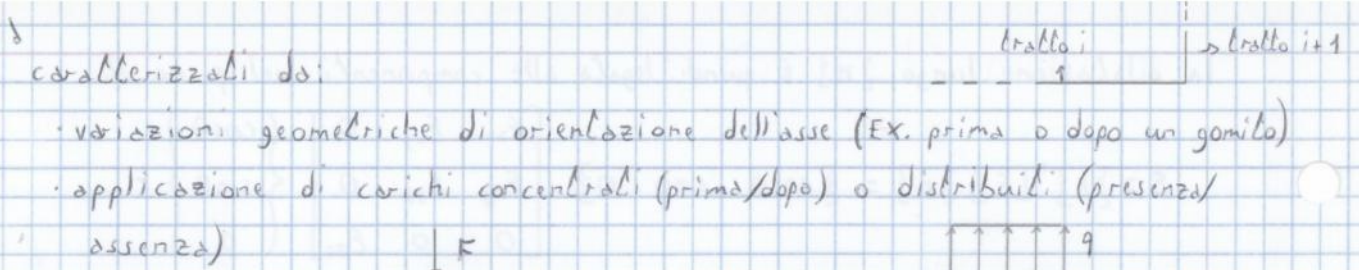 tratto i
tratto i+1
caratterizzati da:
· variazioni geometriche di orientazione dell'asse (Ex. prima o dopo un gomito)
· applicazione di carichi concentrati (prima/dopo) o distribuiti (presenza/
assenza)
F
q